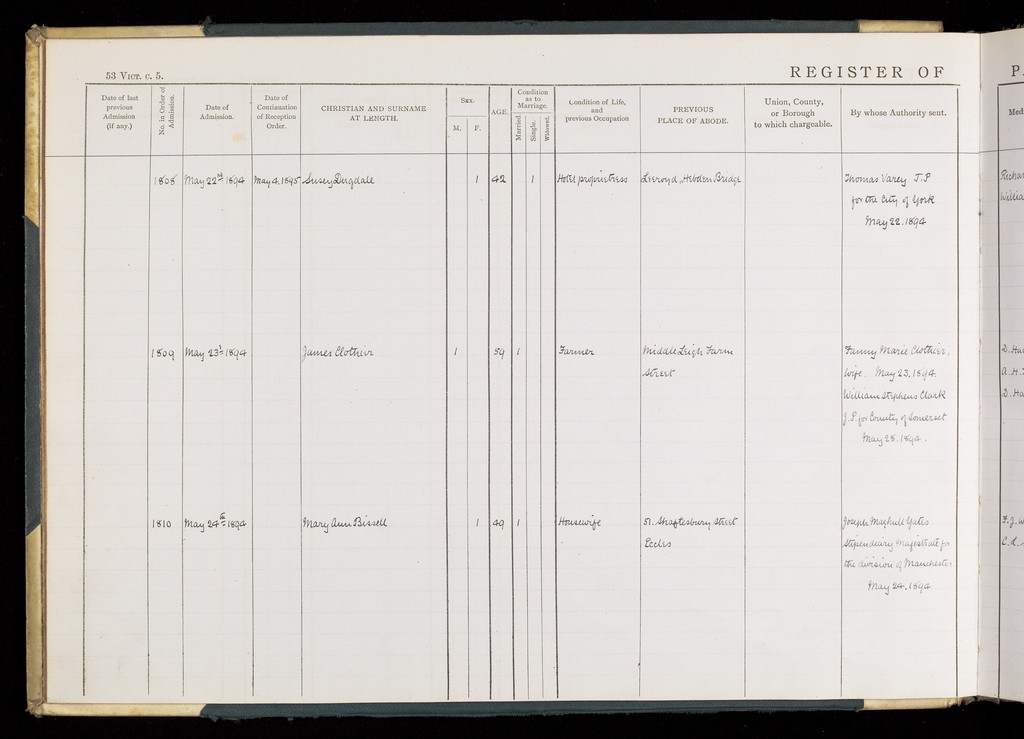 53 VICT. c. 5.
REGISTER OF
P
Date of last previous Admission (if any.)
No. in Order of Admission.
Date of Admission.
Date of Continuation of Reception Order.
CHRISTIAN AND SURNAME AT LENGTH.
SEX.
M.
F.
AGE.
Condition as to Marriage.
Married.
Single.
Widowed.
Condition of Life, and previous Occupation
PREVIOUS PLACE OF ABODE.
Union, County, or Borough to which chargeable.
By whose Authority sent.
Med
1808 May 22nd 1894 May 4. 1895 Susey Dugdale 1 42 1 Hotel proprietress Leeroyd, Hebden Bridge Thomas Varey J.P
for the City of York
May 22. 1894
Richar
Willia
1809 May 23d 1894 James Clothier 1 59 1 Farmer Middle Leigh Farm Fanny Marie Clothier,
Street wife. May 23. 1894.
William Stephens Clark
J.P. for County of Somerset
May 1894.
D. Ha
A. H.
D. Ha
1810 May 24th 1894 Mary Ann Bissell 1 49 1 Housewife 51. Shaftesbury Street Joseph Yates
Eccles Stipendiary Magistrate for
the division of Manchester
May 24. 1894
F. J. W
C.